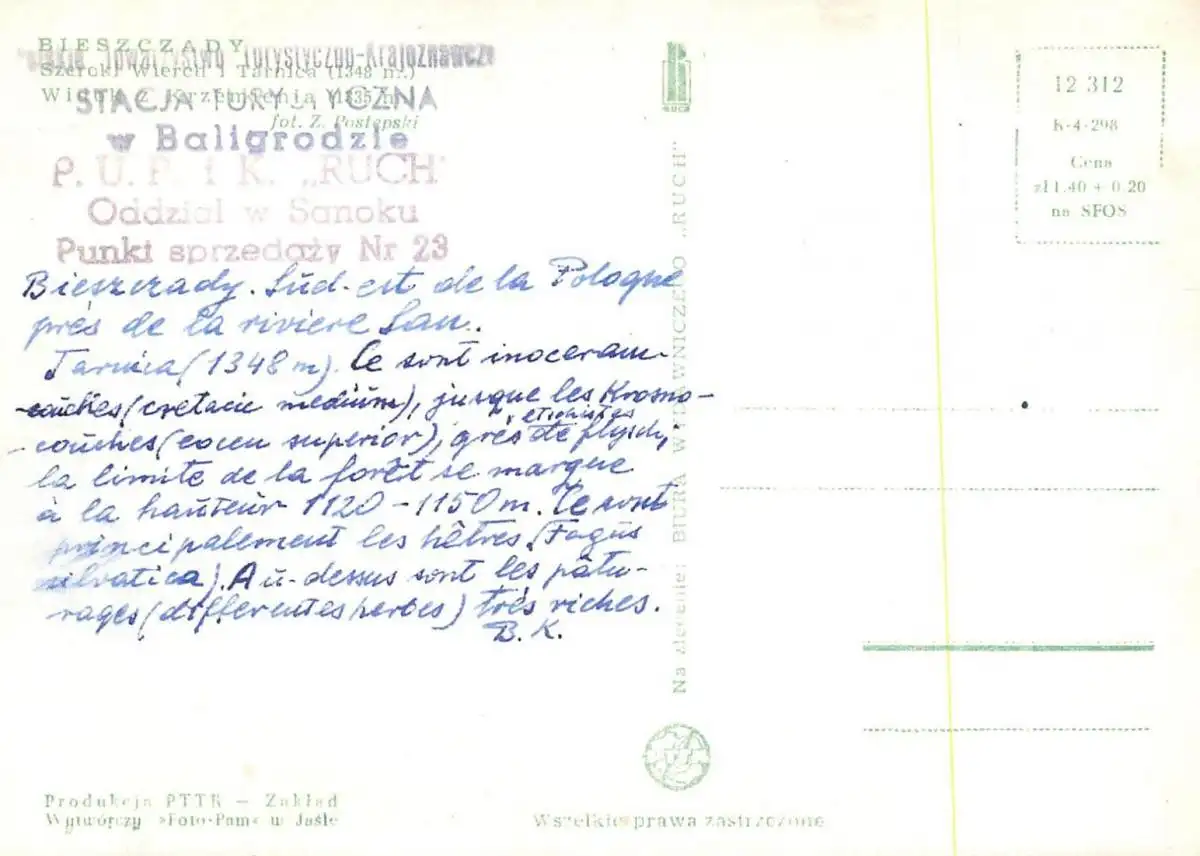 BIESZCZADY
Polskie Towarzystwo Turystyczno-Krajoznawcze
Szeroki Wierch i Tarnica (1348 m.)
Widok z Krzemienia (1335 m.)
STACJA TURYSTYCZNA
fot. Z. Postępski
w Baligrodzie
P. U. P. i K. „RUCH"
Oddział w Sanoku
Punkt sprzedaży Nr 23
Bieszczady. Sud-est de la Pologne
près de la riviere San.
Tarnica (1348 m). Ce sont inoceram-
couches (cretacie medium), jusque les Krosno-
couches (eocen superior), grès de flysch,
la limite de la forêt se marque
à la hauteur 1120-1150 m. Ce sont
principalement les hêtres (Fagus
silvatica). Au-dessus sont les pâtu-
rages (differentes herbes) très riches.
B. K.
RUCH
Na zlecenie: BIURA WYDAWNICZEGO „RUCH"
12 312
K-4-298
Cena
zł 1.40 + 0.20
na SFOS
Produkcja PTTK — Zakład
Wytwórczy »Foto-Pam« w Jaśle
Wszelkie prawa zastrzeżone